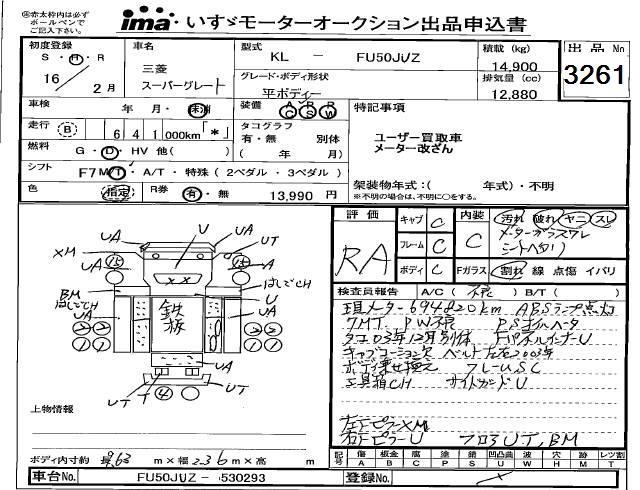 ※赤太枠内は必ずボールペンでご記入下さい。
ima・いすゞモーターオークション出品申込書
初度登録
S・H・R
16年 2月
車名
三菱
スーパーグレート
型式
KL － FU50JUZ
グレード・ボディ形状
平ボディー
積載 (kg)
14,900
排気量 (cc)
12,880
出品No
3261
車検 年・月・抹消
装備 AC PS RW
走行 B 641,000km「*」
タコグラフ
有・無 別体
( 年 月)
燃料 G・D・HV 他( )
シフト F7 MT・A/T・特殊 (2ペダル・3ペダル)
色 指定
R券 有・無 13,990 円
特記事項
ユーザー買取車
メーター改ざん
架装物年式:( 年式)・不明
※不明の場合は、不明に○をする。
評価
RA
キャブ C
フレーム C
ボディ C
内装 C
汚れ 破れ ヤニ スレ
メーターガラスワレ
シートヘタリ
Fガラス 割れ 線 点傷 イバリ
検査員報告 A/C ( 不良 ) B/T ( )
現メーター694820km ABSランプ点灯
7MT PW不良
タコ03年12月別体
ボデー載せ換え
工具箱CH サイドガードU
左Fピラー XM
右Fピラー U フロアUT,BM
U
UA
UA
UT
XM
A
15
15
はしごCH
はしごCH
BM
U
UA
UA
鉄板
XX
UA
UA
UT
T
4
UT
上物情報
ボディ内寸約 長9.63 m×幅2.36 m×高 m
記号 傷A 板金B 腐C 塗P 錆S 凹凸曲U 波W 穴H 跡M レツ割T
車台No. FU50JUZ－530293
登録No.